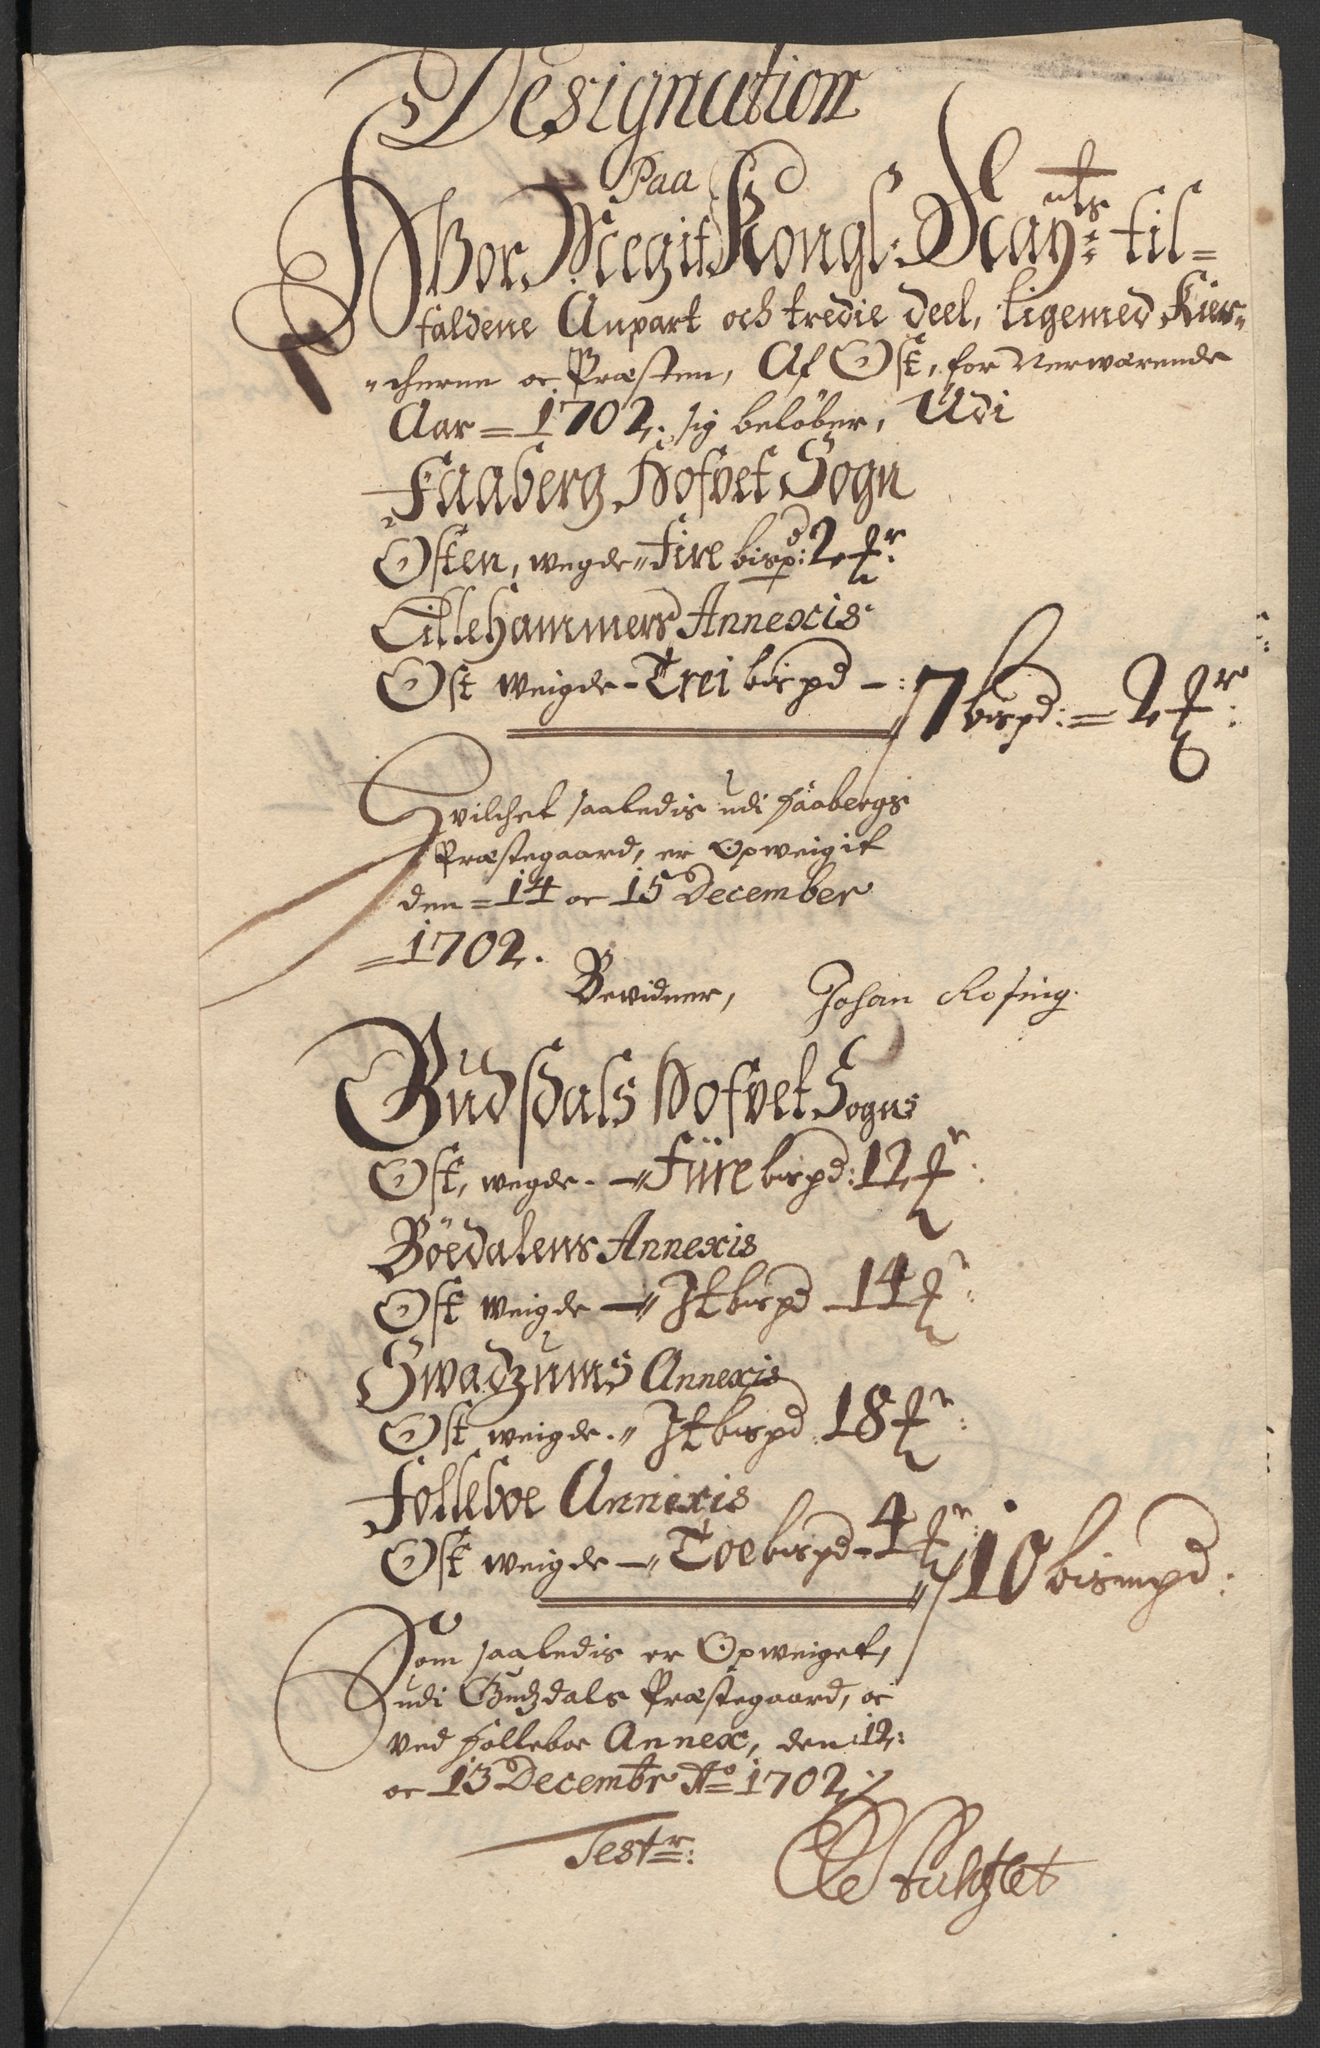 Designation
Paa
Hvor Megit Kongl: May:ts til=
faldene Anpart och tredie deel, ligemed Kier=
cherne oc Præsten, Af Ost, for Nerwærende
Aar = 1702, sig beløber, Udi
Faaberg Hofvet Sogn
Osten, wegde fire bispd: 2 ℔r:
Lillehammers Annexis
Ost weigde - Trei bispd -: 7 bispd: = 2 ℔r:
Hvilchet saaledis udi Faabergs
Præstegaard, er Opweigit
den = 14 oc 15 December
= 1702.
Bevidner, Johan Rosing.
Gudsdals Hofvet Sogns
Ost, wegde - Fiire bispd: 12 ℔r:
Böedalens Annexis
Ost weigde - It bispd - 14 ℔r:
Swadzums Annexis
Ost weigde - It bispd: 18 ℔r:
Folleboe Annexis
Ost weigde - Toe bispd - 4 ℔r: 10 bismpd:
Som saaledis er Opweiget,
udi Gudzdals Præstegaard, oc
ved Folleboe Annex, den 12:
oc 13 Decembr Ao 1702
Testr: